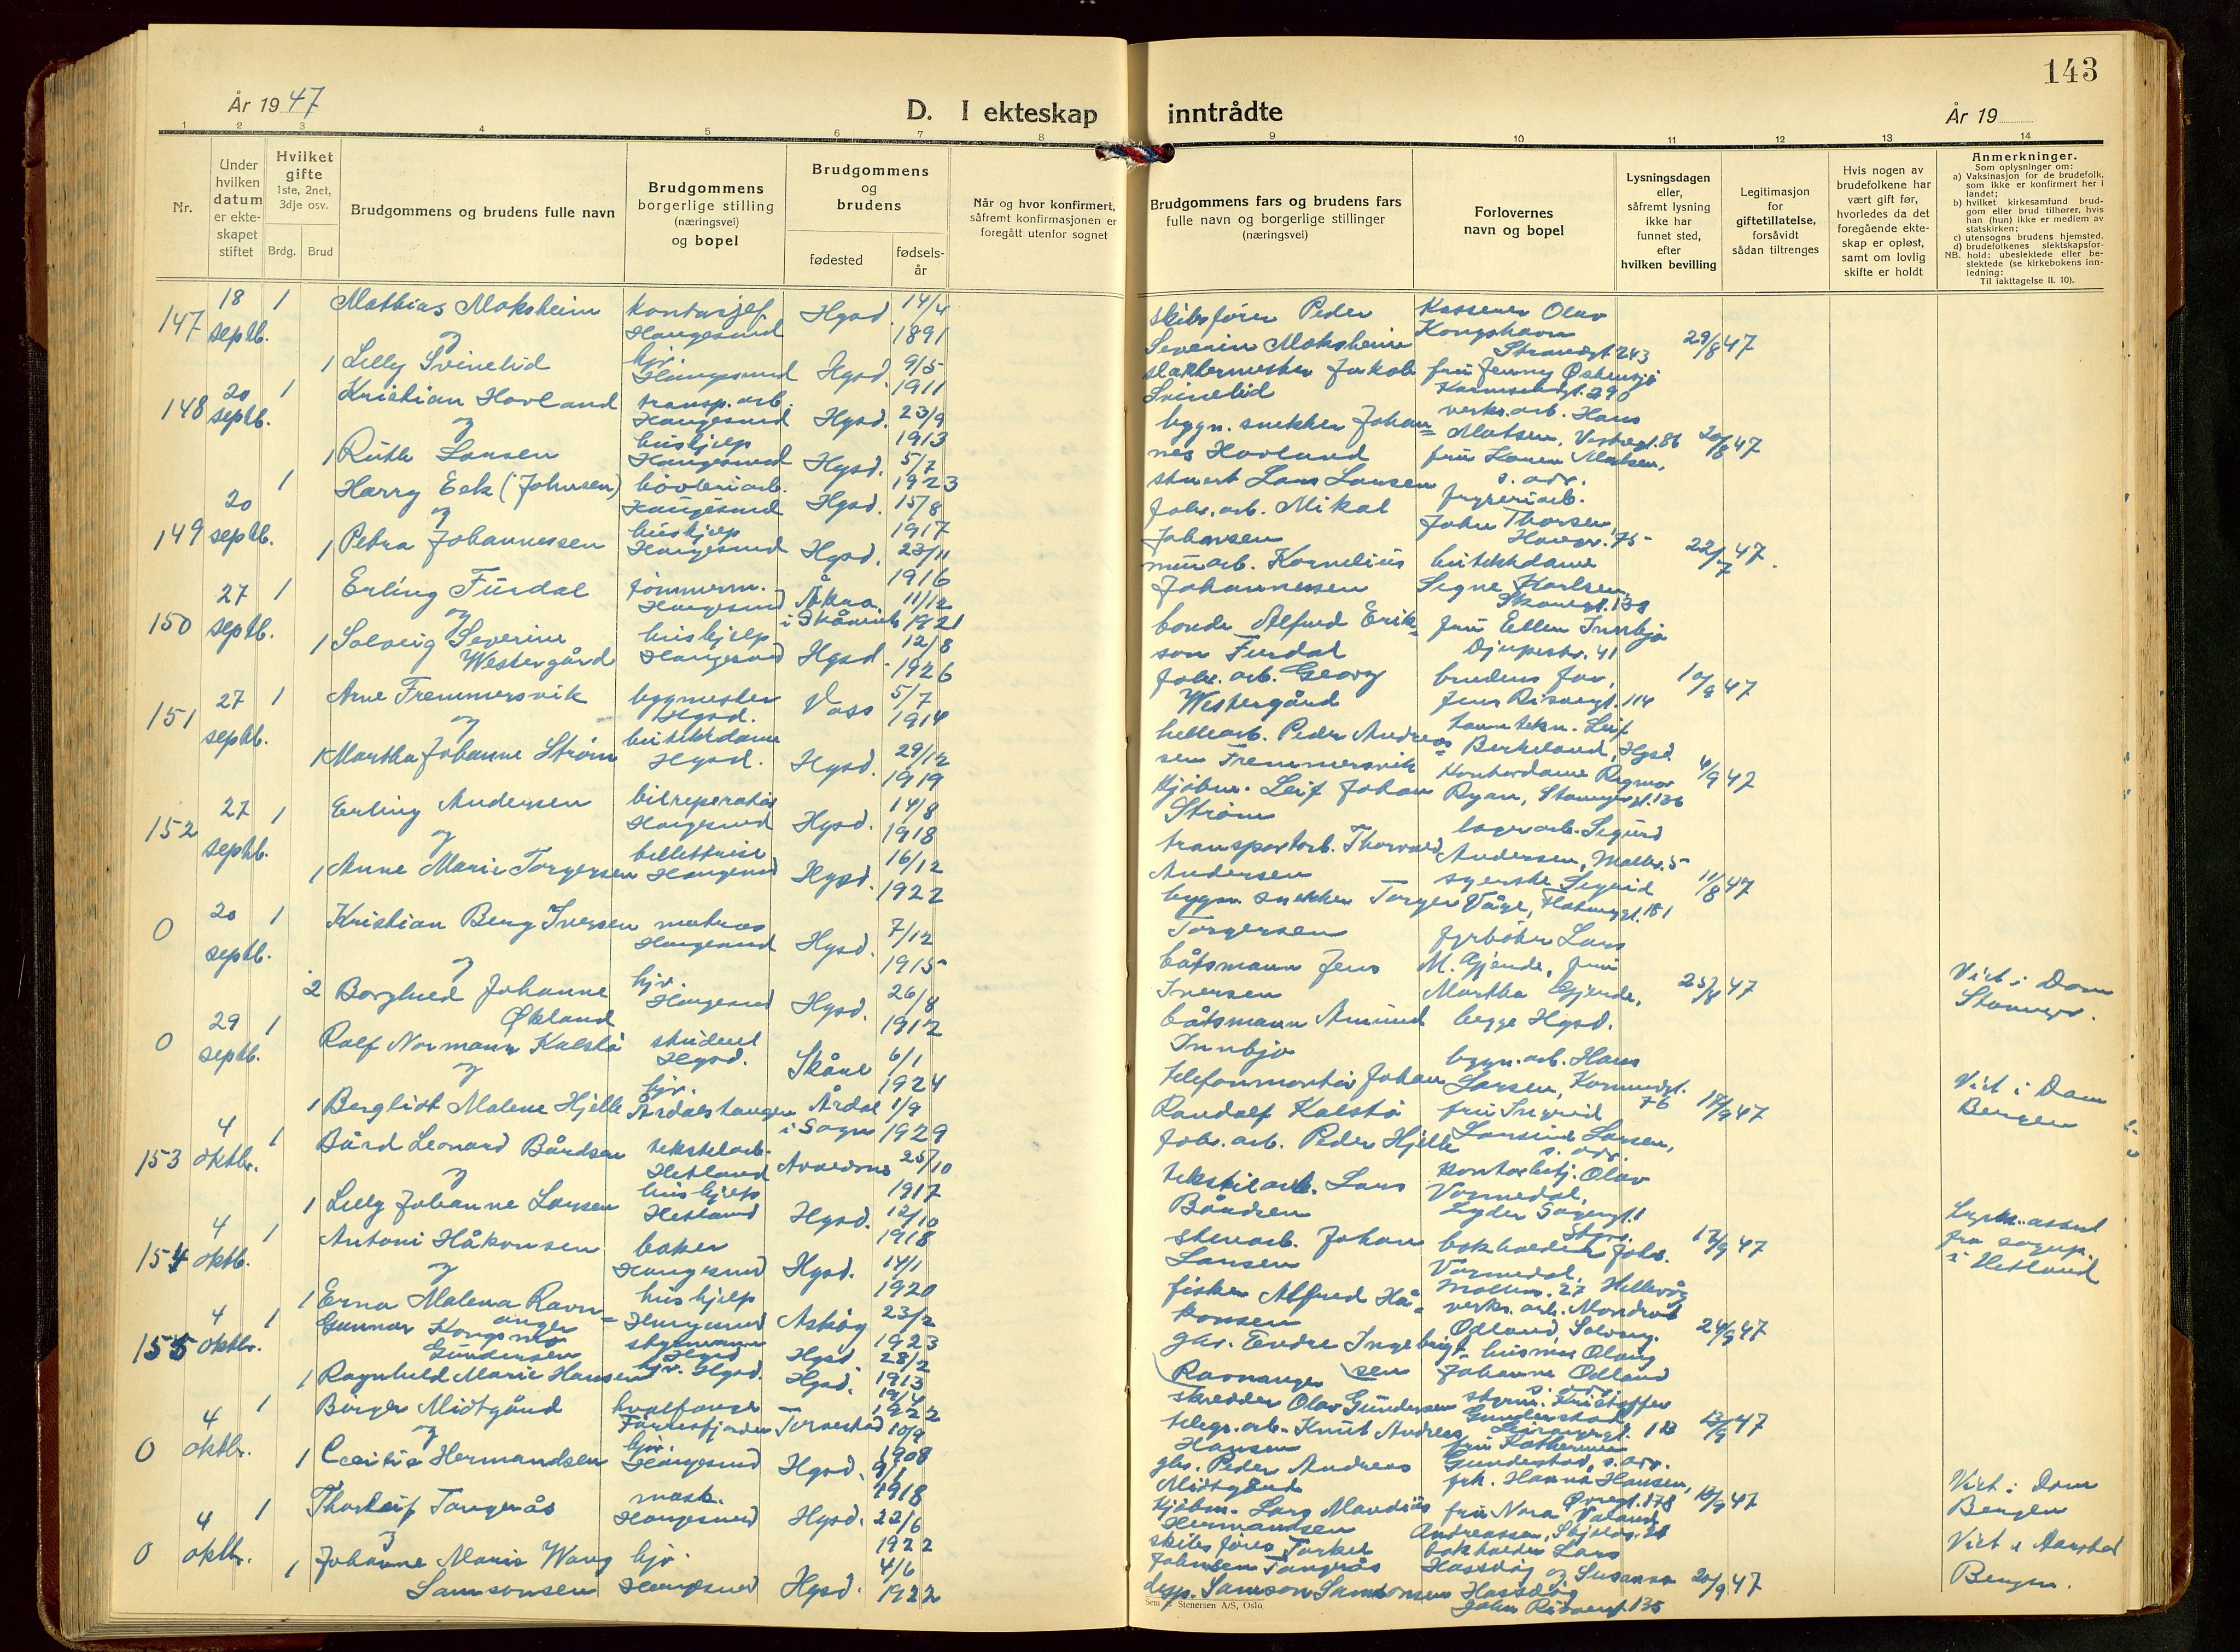 År 1947
D. I ekteskap
inntrådte
143
År 19
1 2 3 4 5 6 7 8 9 10 11 12 13 14
Nr.
Under hvilken datum er ekteskapet stiftet
Hvilket gifte 1ste, 2net, 3dje osv.
Brdg. Brud
Brudgommens og brudens fulle navn
Brudgommens borgerlige stilling (næringsvei) og bopel
Brudgommens og brudens
fødested
fødsels-år
Når og hvor konfirmert, såfremt konfirmasjonen er foregått utenfor sognet
Brudgommens fars og brudens fars fulle navn og borgerlige stillinger (næringsvei)
Forlovernes navn og bopel
Lysningsdagen eller, såfremt lysning ikke har funnet sted, efter hvilken bevilling
Legitimasjon for giftetillatelse, forsåvidt sådan tiltrenges
Hvis nogen av brudefolkene har vært gift før, hvorledes da det foregående ekteskap er opløst, samt om lovlig skifte er holdt
Anmerkninger.
Som oplysninger om:
a) Vaksinasjon for de brudefolk, som ikke er konfirmert her i landet;
b) hvilket kirkesamfund brudgom eller brud tilhører, hvis han (hun) ikke er medlem av statskirken;
c) utensogns brudens hjemsted.
d) brudefolkenes slektskapsforhold: ubeslektede eller beslektede (se kirkebokens innledning:
NB.
Til iakttagelse II. 10).
147 18 septb. 1 Mathias Moksheim kontorsjef Haugesund Hgsd. 14/4 1891
og
1 Lilly Svinelid hjv. Haugesund Hgsd. 9/5 1911
skibsfører Peder Severin Moksheim
slaktermester Jakob Svinelid
Kasserer Olav Kongshavn Strandgt. 243
fru Jenny Østensjø Karmsundgt. 290
29/8 47
148 20 septb. 1 Kristian Hovland transp.arb. Haugesund Hgsd. 23/9 1913
og
1 Ruth Larsen hushjelp Haugesund Hgsd. 5/7 1923
bygn. snekker Johannes Hovland
stuert Lars Larsen
verks.arb. Hans Madsen, 86
fru Karen Madsen, s. adr.
20/8 47
149 20 septb. 1 Harry Eek (Johnsen) Haugesund Hgsd. 15/8 1917
og
1 Petra Johannessen hushjelp Haugesund Hgsd. 23/11 1916
fabr. arb. Mikal Johansen
murarb. Kornelius Johannessen
fryseriarb. John Thorsen, 75
butikkdame Signe Karlsen, Skåregt. 138
22/7 47.
150 27 septb. 1 Erling Furdal tømmerm. Haugesund Åkra i Skånevik 11/12 1921
og
1 Solveig Severine Westergård hushjelp Haugesund Hgsd. 12/8 1926
bonde Alfred Erikson Furdal
fabr. arb. Georg Westergård
fru Ellen Innbjo Djupestr. 41
brudens far, Jens Risøegt. 114
10/9 47
151 27 septb. 1 Arne Fremmersvik bygmester Hgsd. Voss 5/7 1914
og
1 Martha Johanne Strøm butikkdame Hgsd. Hgsd. 29/12 1919
hellearb. Peder Andreassen Fremmersvik
kjøbm. Leif Johan Strøm
tanntekn. Leif Birkeland, Hgsd.
Kontordame Ragmor Ryan, 136
4/9 47
152 27 septb. 1 Erling Andersen bilreparatør Haugesund Hgsd. 14/8 1918
og
1 Anne Marie Torgersen billettrise Haugesund Hgsd. 16/12 1922
transportarb. Thorvald Andersen
bygn. snekker Torger Torgersen
lagerarb. Sigurd Andersen, 5
syerske Sigrid Våge, 181
11/8 47
0 20 septb. 1 Kristian Berg Iversen matros Haugesund Hgsd. 7/12 1915
og
2 Borghild Johanne Økland hjv. Haugesund Hgsd. 26/8 1912
båtsmann Jens Iversen
båtsmann Amund Innbjo
fyrbøter Lars M. Gjerde, fru Martha Gjerde, begge Hgsd.
25/8 47
Viet i Dom Stavanger.
0 29 septb. 1 Rolf Normann Kalstø student Hgsd. Skåre 6/1 1924
og
1 Bergliot Malene Hjelle hjv. Årdalstangen Årdal i Sogn 1/9 1929
telefonmontør Johan Randolf Kalstø
fabr. arb. Peder Hjelle
bygn. arb. Hans Larsen, Karmsundgt. 76
fru Ingrid Larsen, s. adr.
17/9 47
Viet i Dom Bergen
153 4 oktbr. 1 Bård Leonard Bårdsen tekstilarb. Hetland Avaldsnes 25/10 1917
og
1 Lilly Johanne Larsen hushjelp Hetland Hgsd. 12/10 1918
tekstilarb. Lars Bårdsen
stenarb. Johan Larsen
Kontorbetj. Olav Vormedal, Lyder Sagengt. 1 Stgr.
bokholder Vormedal,
17/9 47
Lysn. attest fra sogn i Hetland
154 4 oktb. 1 Antoni Håkonsen baker Haugesund Hgsd. 14/1 1920
og
1 Erna Malena Ravnanger hushjelp Haugesund Askøy 23/2 1923
fisker Alfred Håkonsen
Endre Ingebrigtsen Ravnanger
verks. arb. Mondrad Odland, Solvang.
husmor Olaug Johanne Odland s. adr.
24/9 47
155 4 oktbr. 1 Gunnar Kongsmo Gundersen styrmann Hgsd Hgsd 28/2 1913
1 Ragnhild Marie Hansen hjv. Hgsd. Hgsd. 19/4 1922
skredder Olav Gundersen
telegr. arb. Knut Andreas Hansen
styrm. Kristoffer Gunderstad 123
fru Katherine Gunderstad, s. adr.
13/9 47
0 4 oktbr. 1 Birger Midtgård hvalfanger Førresfjorden Torvestad 10/9 1908
og
1 Cecilia Hermandsen hjv. Haugesund Hgsd. 9/1 1918
Peder Andreas Midtgård
kjøbm. Lars Mandius Hermandsen
frk. Hanna Hansen, Øvregt. 178
fru Nora Valand Andreassen,
13/9 47
Viet i Dom Bergen
0 4 oktbr. 1 Thorleif Tangerås mask. Haugesund Hgsd. 22/6 1922
og
1 Johanne Marie Wang Samsonsen hjv. Haugesund Hgsd. 4/6 1922
skibsfører Torkel Johnsen Tangerås
disp. Samson Samsonsen
bokholder Lars Hassdøy og Susanna Hassdøy 135
20/9 47
Viet i Bergen.
Sem & Stenersen A/S, Oslo